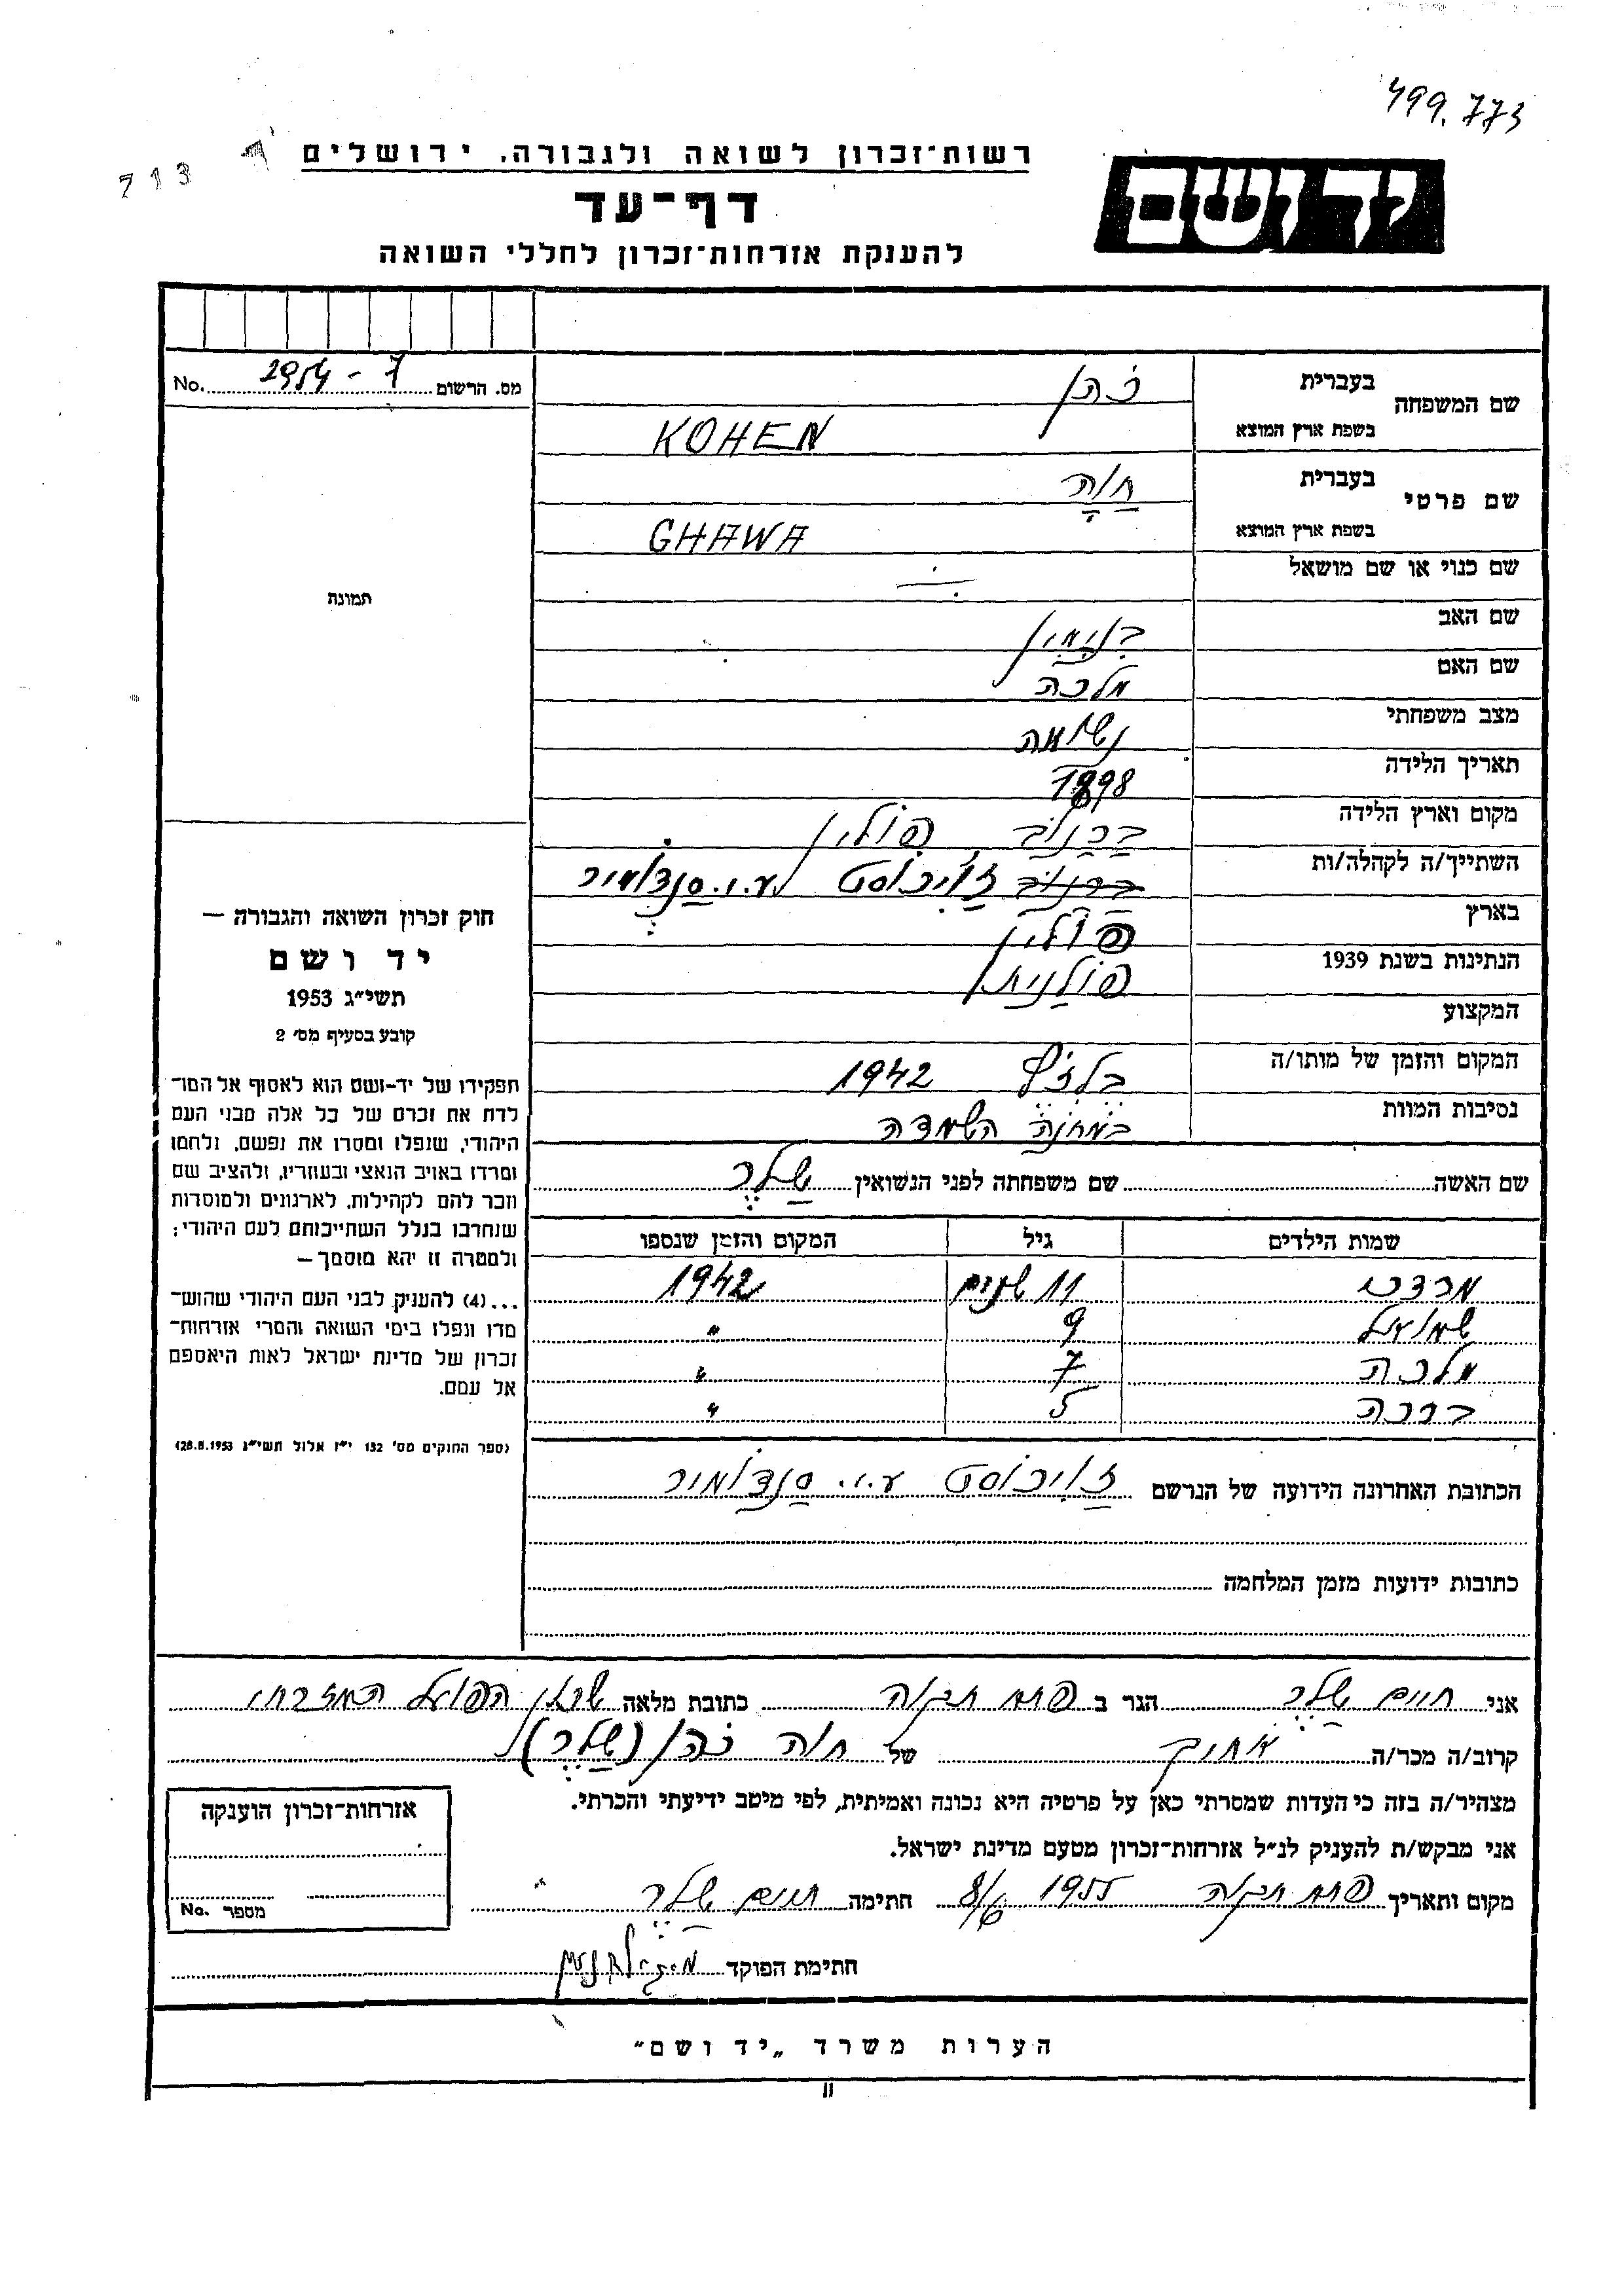 499.773
713
רשות־זכרון לשואה ולגבורה, ירושלים
יד ושם
דף־עד
להענקת אזרחות־זכרון לחללי השואה
מס. הרשום 2954 - 7 No.
שם המשפחה בעברית כהן
בשפת ארץ המוצא KOHEN
שם פרטי בעברית חוה
בשפת ארץ המוצא GHAWA
שם כנוי או שם מושאל
תמונה
שם האב בנימין
שם האם מלכה
מצב משפחתי נשואה
תאריך הלידה 1898
מקום וארץ הלידה ברנוב פולין
השתייך/ה לקהלה/ות ברנוב זויכוסט ע.י. סנדומיר
בארץ פולין
הנתינות בשנת 1939 פולנית
המקצוע
המקום והזמן של מותו/ה בלזץ 1942
נסיבות המוות במחנה השמדה
שם האשה שם משפחתה לפני הנשואין שלר
חוק זכרון השואה והגבורה —
יד ושם
תשי״ג 1953
קובע בסעיף מס׳ 2
תפקידו של יד-ושם הוא לאסוף אל המו־
לדת את זכרם של כל אלה מבני העם
היהודי, שנפלו ומסרו את נפשם, נלחמו
ומרדו באויב הנאצי ובעוזריו, ולהציב שם
וזכר להם לקהילות, לארגונים ולמוסדות
שנחרבו בגלל השתייכותם לעם היהודי;
ולמטרה זו יהא מוסמך—
...(4) להעניק לבני העם היהודי שהוש־
מדו ונפלו בימי השואה והמרי אזרחות־
זכרון של מדינת ישראל לאות היאספם
אל עמם.
(ספר החוקים מס׳ 132 י״ז אלול תשי״ג 28.8.1953)
שמות הילדים גיל המקום והזמן שנספו
מרדכי 11 שנים 1942
שמואל 9 "
מלכה 7 "
ברכה 5 "
הכתובת האחרונה הידועה של הנרשם זויכוסט ע.י. סנדומיר
כתובות ידועות מזמן המלחמה
אני חיים שלר הגר ב פתח תקוה כתובת מלאה שכון הפועל המזרחי
קרוב/ה מכר/ה אחיך של חוה כהן (שלר)
מצהיר/ה בזה כי העדות שמסרתי כאן על פרטיה היא נכונה ואמיתית, לפי מיטב ידיעתי והכרתי.
אני מבקש/ת להעניק לנ״ל אזרחות־זכרון מטעם מדינת ישראל.
מקום ותאריך פתח תקוה 1955 8/6 חתימה חיים שלר
חתימת הפוקד
אזרחות־זכרון הוענקה
מספר No.
הערות משרד „יד ושם״
11